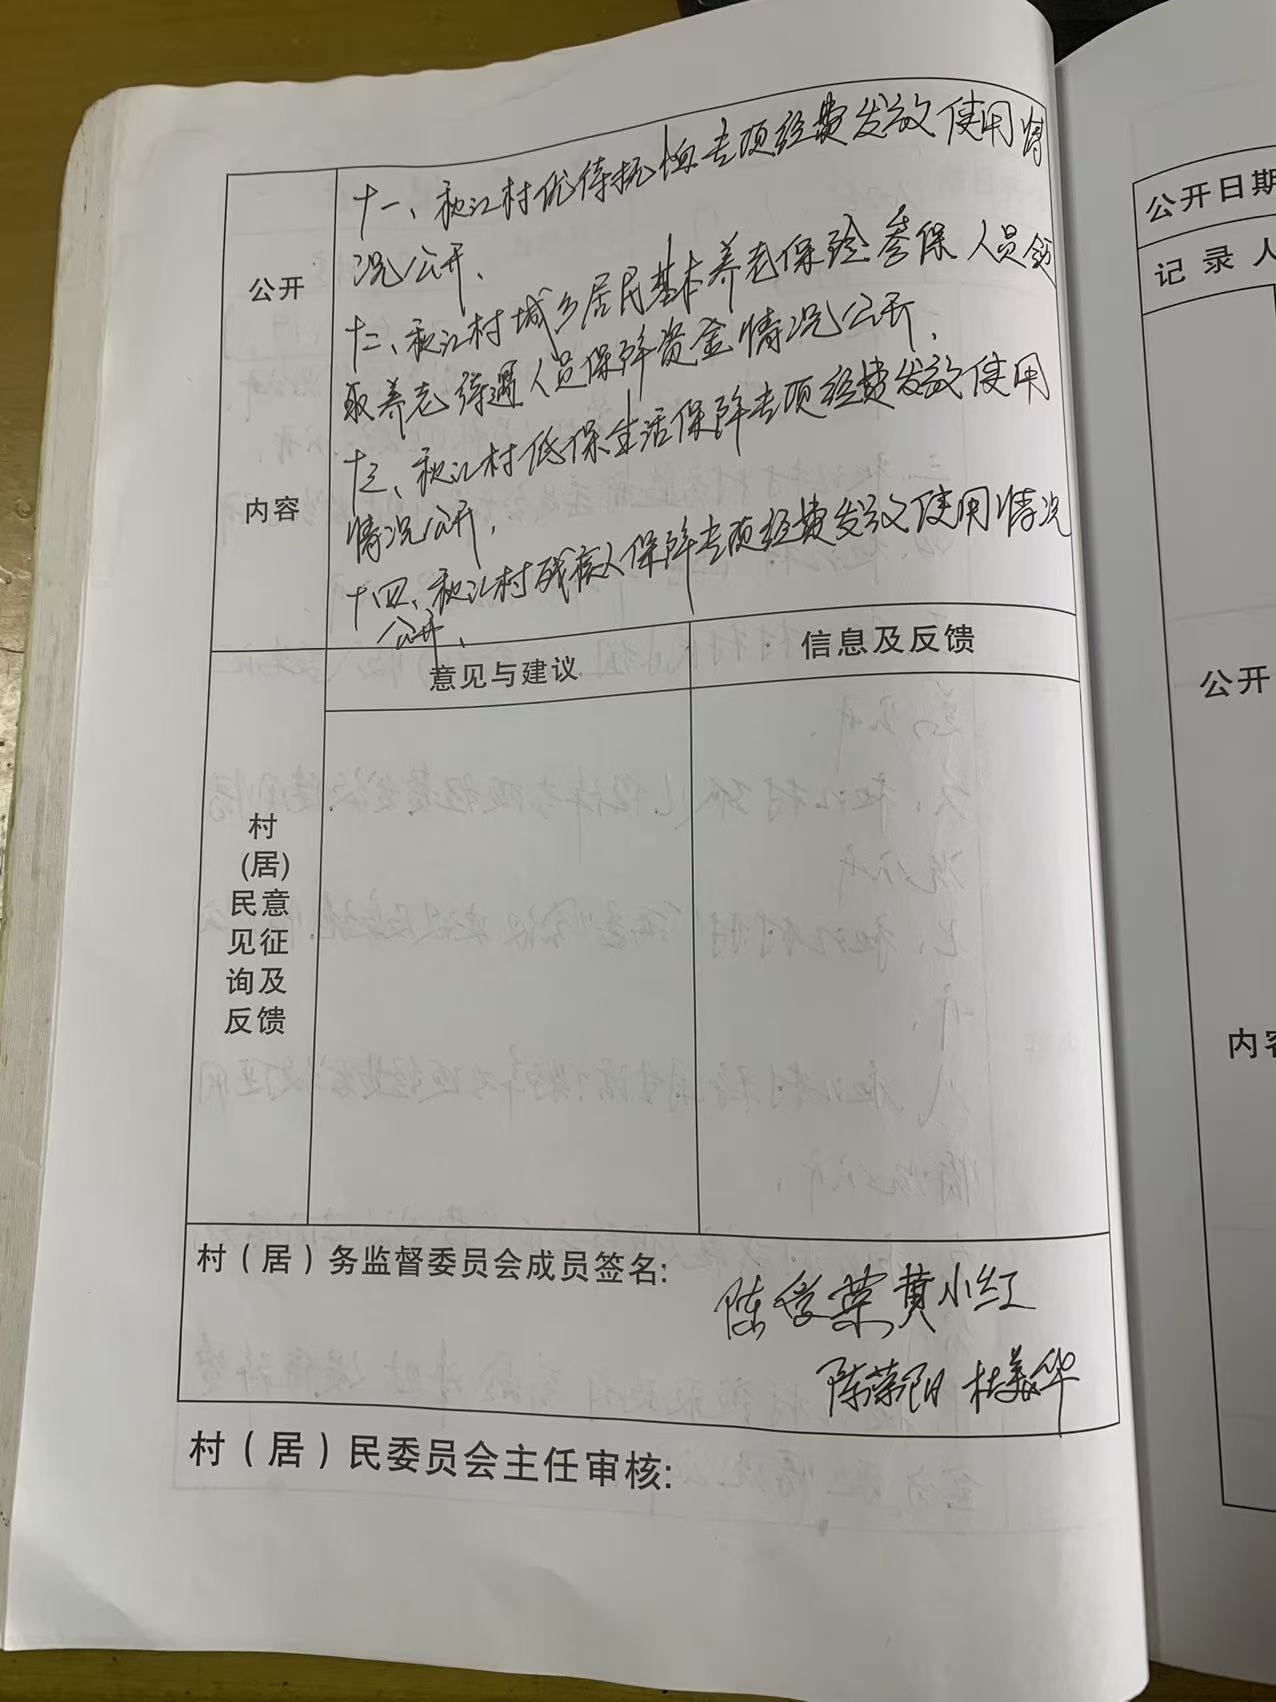 十一、秋江村优待抚恤专项经费发放使用情
况公开、
十二、秋江村城乡居民基本养老保险参保人员领
取养老待遇人员保障资金情况公开、
十三、秋江村低保生活保障专项经费发放使用
情况公开、
十四、秋江村残疾人保障专项经费发放使用情况
公开、
公开
内容
意见与建议
信息及反馈
村
(居)
民意
见征
询及
反馈
村（居）务监督委员会成员签名:
陈俊荣 黄小红
陈荣阳 杜美华
村（居）民委员会主任审核:
公开日期
记录人
公开
内容